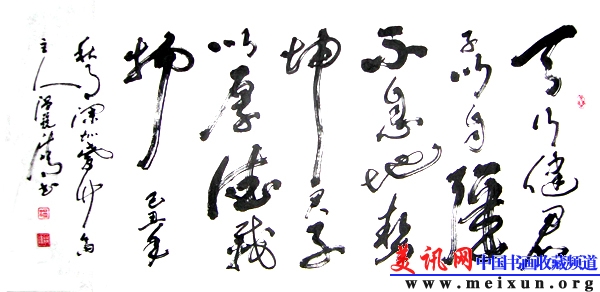 天行健君
子以自强
不息地势
坤君子
以厚德载
物
己丑冬
主人
书
美讯网 中国书画收藏频道
www.meixun.org